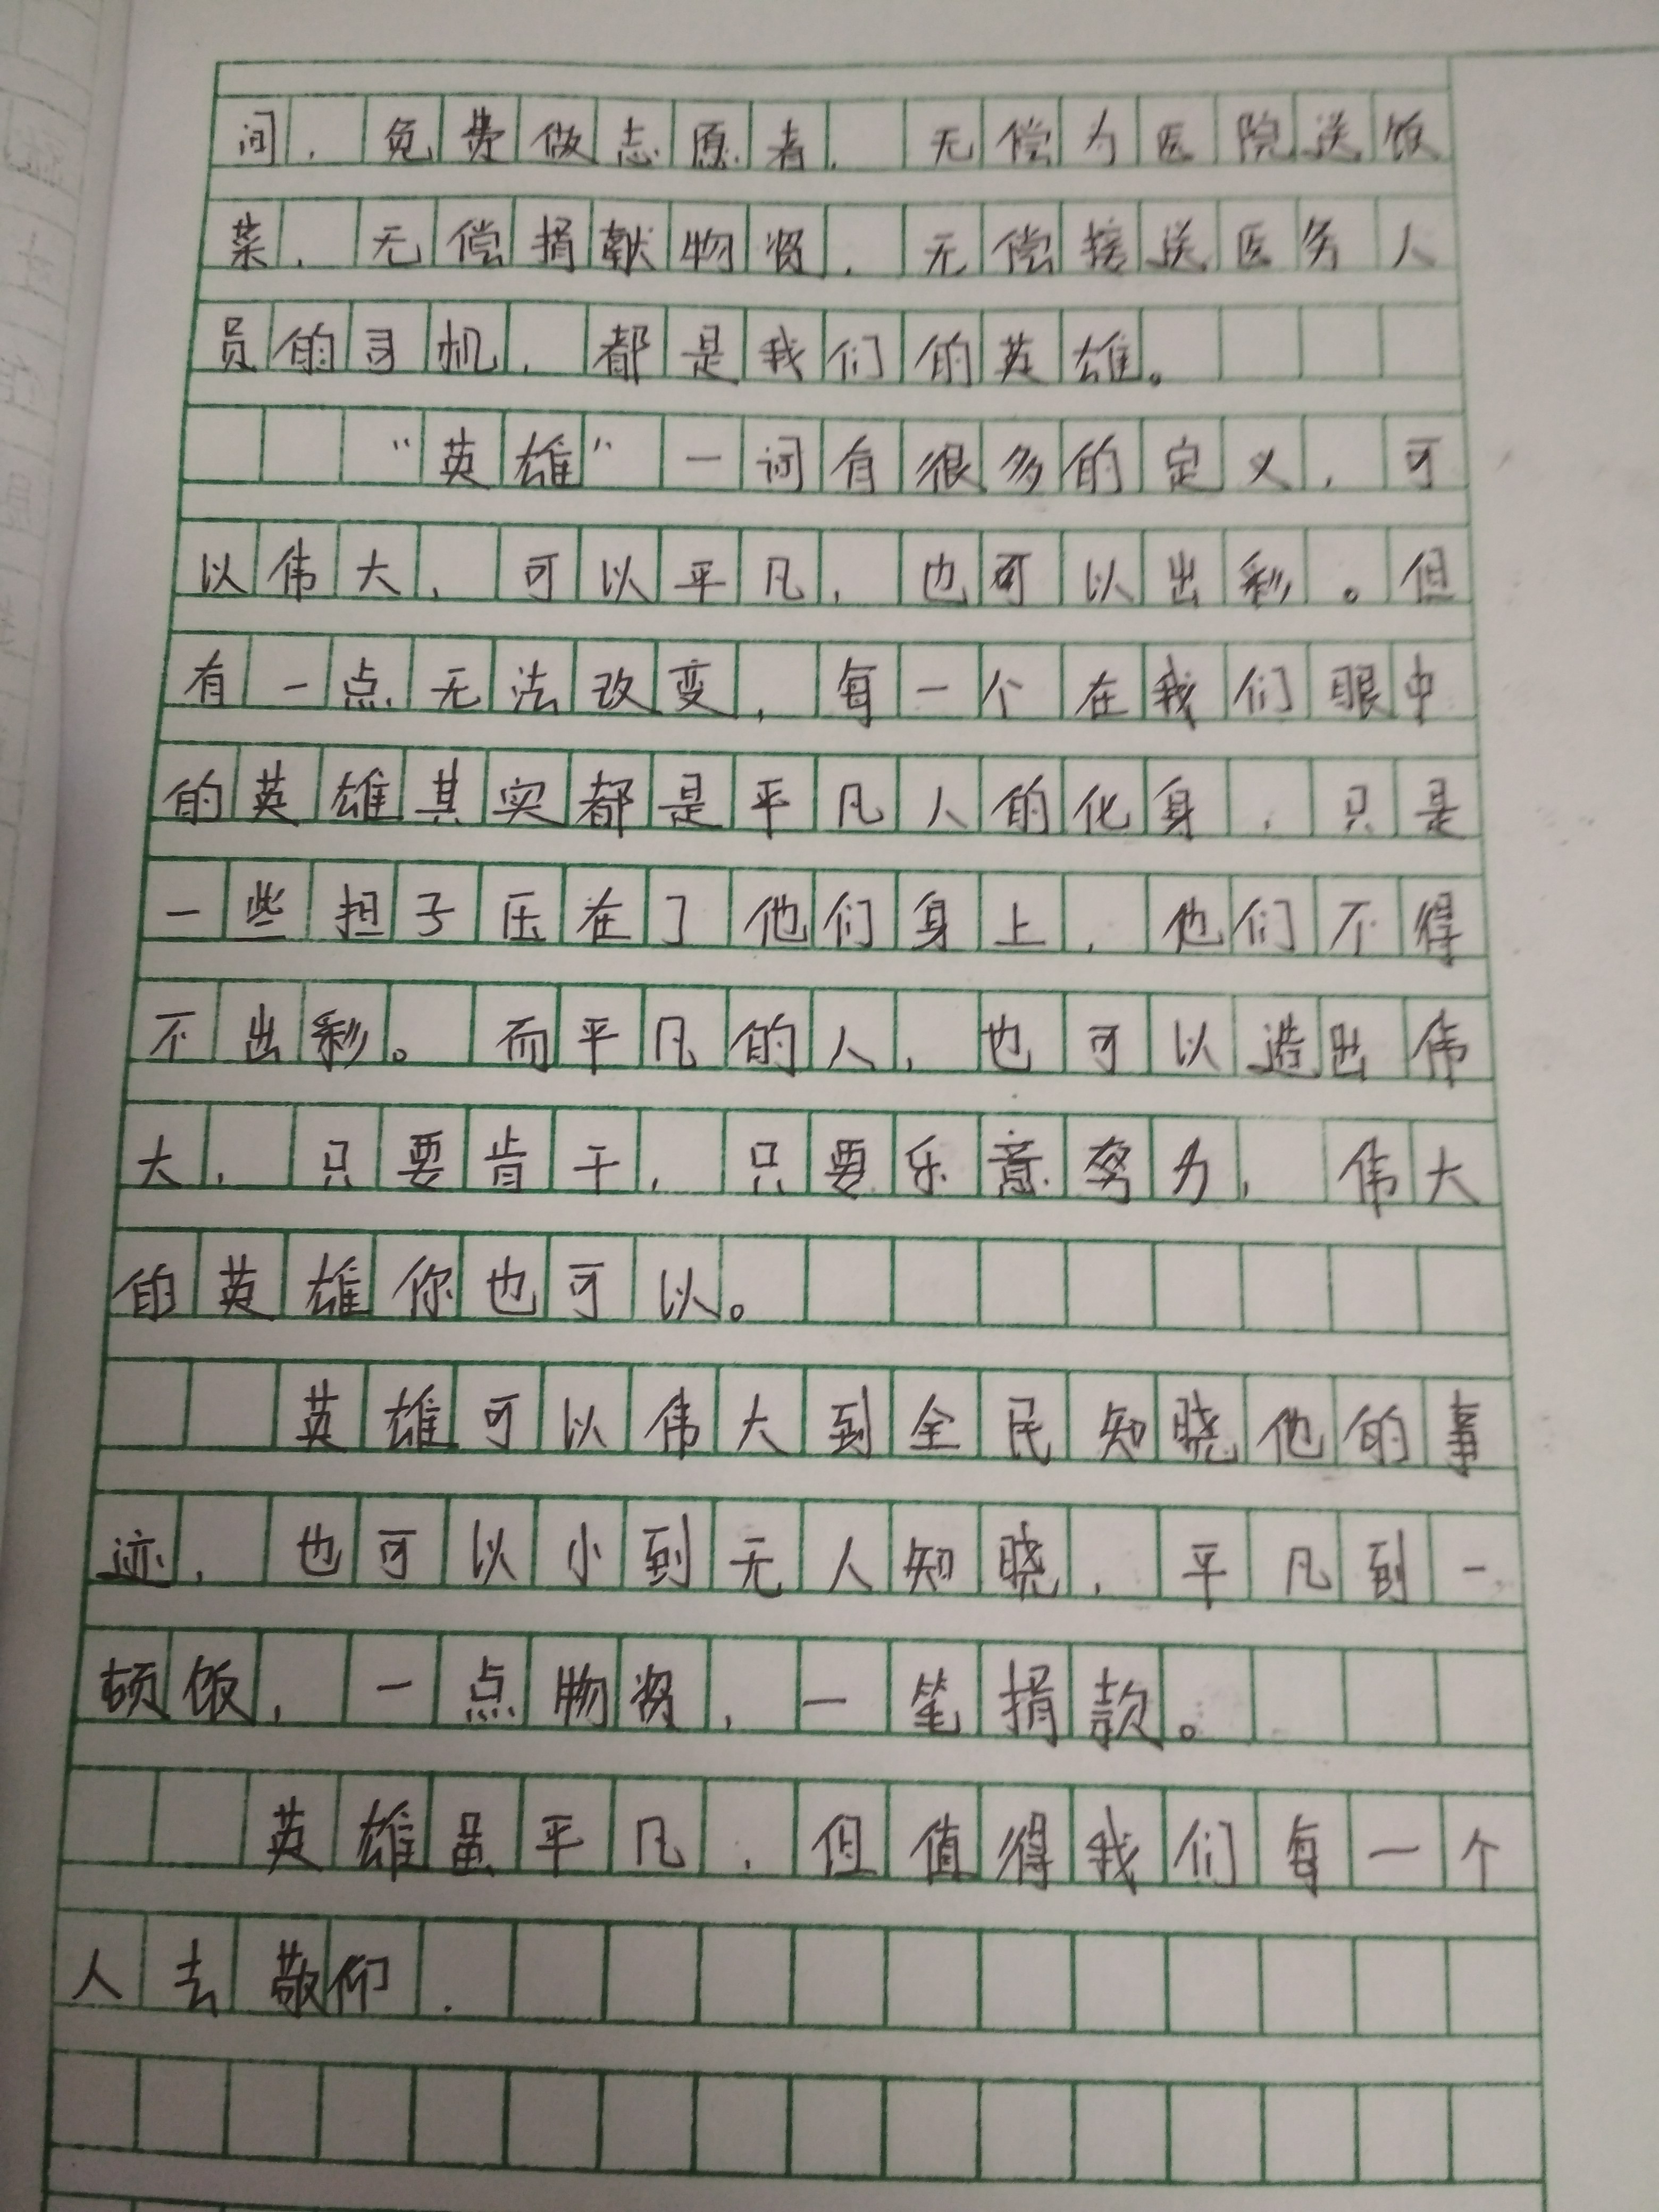 间，免费做志愿者，无偿为医院送饭
菜，无偿捐献物资，无偿接送医务人
员的司机，都是我们的英雄。
“英雄”一词有很多的定义，可
以伟大，可以平凡，也可以出彩。但
有一点无法改变，每一个在我们眼中
的英雄其实都是平凡人的化身，只是
一些担子压在了他们身上，他们不得
不出彩。而平凡的人，也可以造出伟
大，只要肯干，只要乐意努力，伟大
的英雄你也可以。
英雄可以伟大到全民知晓他的事
迹，也可以小到无人知晓，平凡到一
顿饭，一点物资，一笔捐款。
英雄虽平凡，但值得我们每一个
人去敬仰.